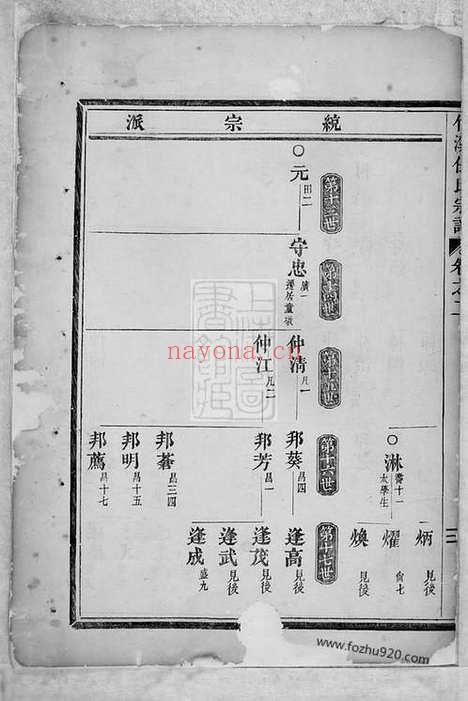 統宗派
淋 書十一 太學生
炳 見後
燿 尙七
煥 見後
第十三世
第十四世
第十五世
第十六世
第十七世
元 田二
守忠 廣一
仲淸 凡一
仲江 凡二
邦葵 昌四
邦芳 昌一
邦蒼 昌三四
邦明 昌十五
邦薦 昌十七
逢高 見後
逢茂 見後
逢武 見後
逢成 盛九
nayona.cn
www.fozhu920.com